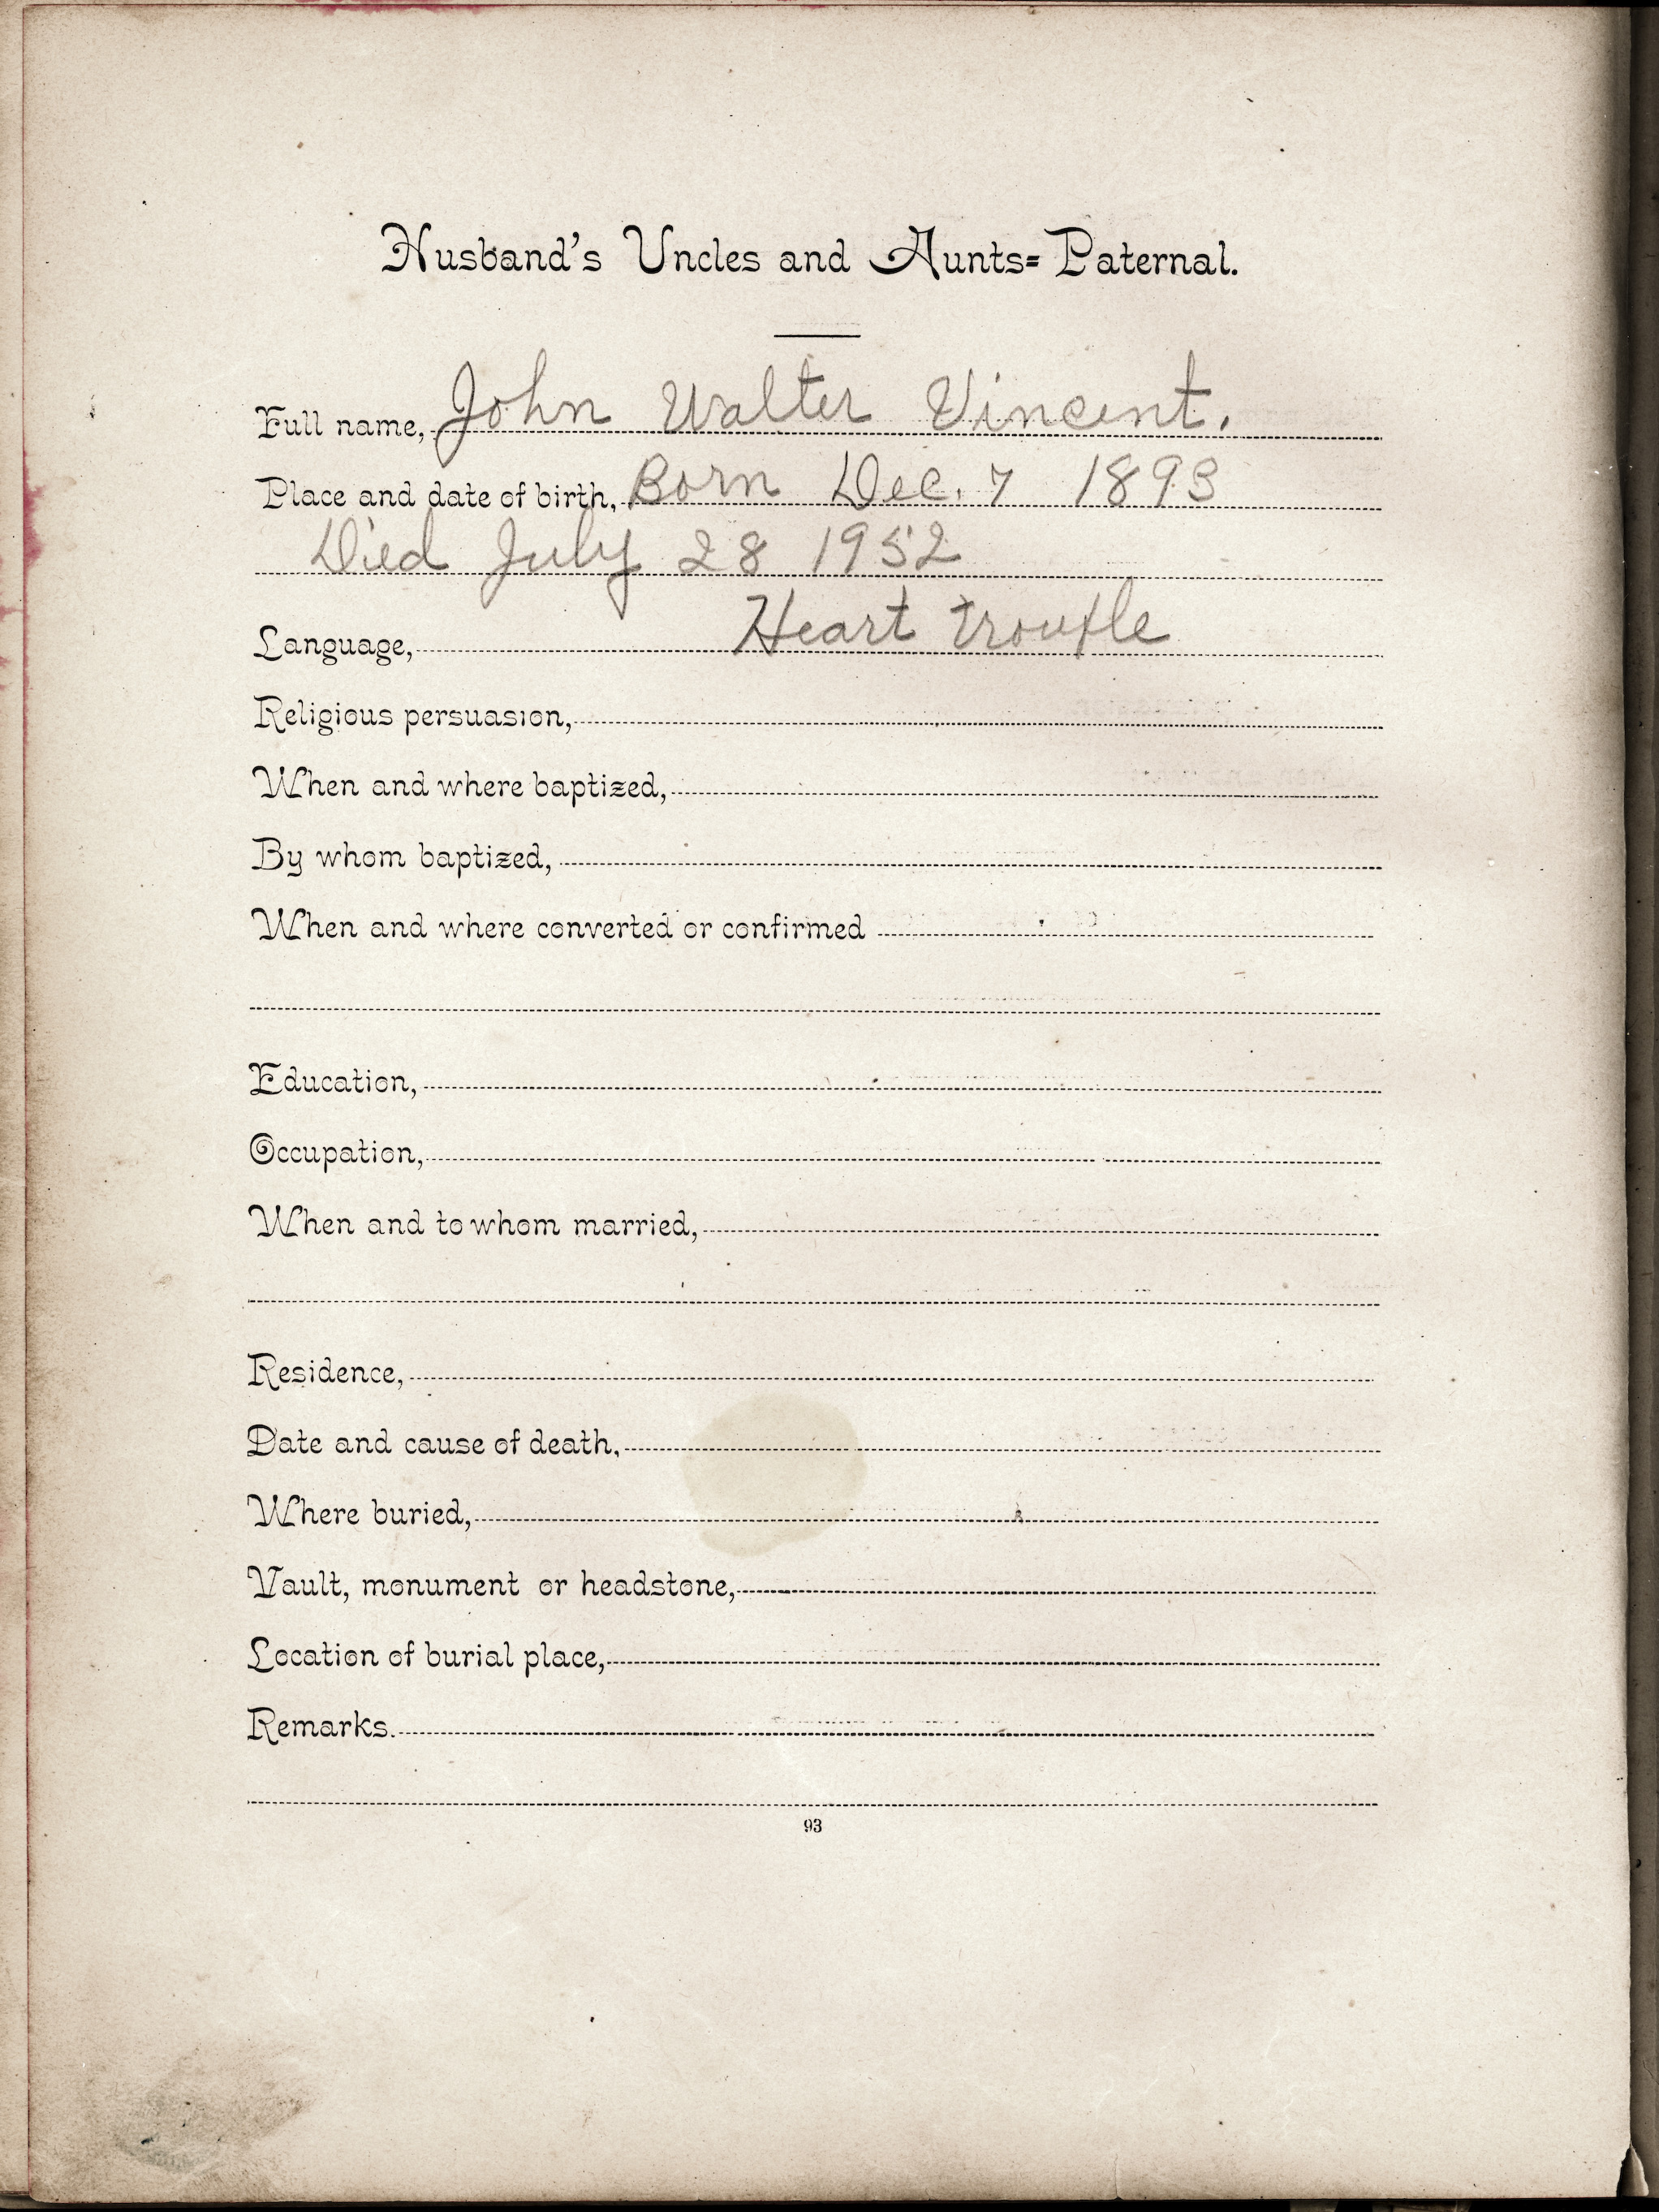 Husband's Uncles and Aunts=Paternal.
Full name, John Walter Vincent.
Place and date of birth, Born Dec. 7 1893
Died July 28 1952
Language, Heart trouble
Religious persuasion,
When and where baptized,
By whom baptized,
When and where converted or confirmed
Education,
Occupation,
When and to whom married,
Residence,
Date and cause of death,
Where buried,
Vault, monument or headstone,
Location of burial place,
Remarks.
93